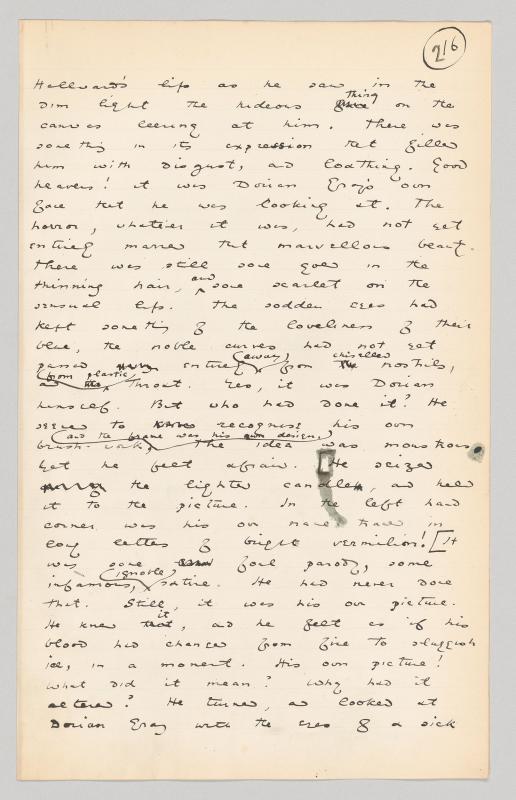 216
Hallward's lips as he saw in the
dim light the hideous thing on the
canvas leering at him. There was
something in its expression that filled
him with disgust, and loathing. Good
heavens! it was Dorian Gray's own
face that he was looking at. The
horror, whatever it was, had not yet
entirely marred that marvellous beauty.
There was still some gold in the
thinning hair, and some scarlet on the
sensual lips. The sodden eyes had
kept something of the loveliness of their
blue, the noble curves had not yet
passed entirely away from chiselled nostrils,
and from plastic throat. Yes, it was Dorian
himself. But who had done it? He
seemed to recognise his own
brush-work, and the frame was his own design. The idea was monstrous
yet he felt afraid. [He seized
the lighted candle, and held
it to the picture. In the left hand
corner was his own name traced in
long letters of bright vermilion! [It
was some foul parody, some
infamous, ignoble, satire. He had never done
that. Still, it was his own picture.
He knew it, and he felt as if his
blood had changed from fire to sluggish
ice, in a moment. His own picture!
What did it mean? Why had it
altered? He turned, and looked at
Dorian Gray with the eyes of a sick